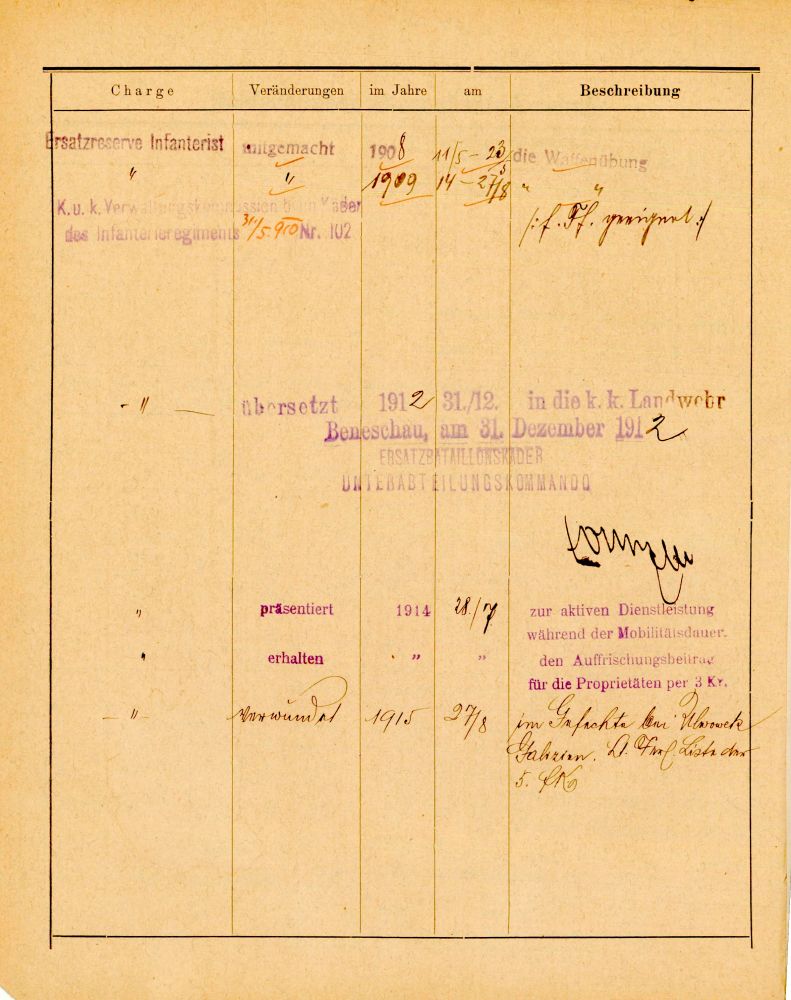 Charge Veränderungen im Jahre am Beschreibung
Ersatzreserve Infanterist mitgemacht 1908 11/5 – 23/5 die Waffenübung
" " 1909 14 – 27/8 " "
K.u.k. Verwaltungskommission beim Kader
des Infanterieregiments 31/5 910 Nr. 102
/: f. geeignet :/
- " — übersetzt 1912 31./12. in die k. k. Landwehr
Beneschau, am 31. Dezember 1912
ERSATZBATAILLONSKADER
UNTERABTEILUNGSKOMMANDO
" präsentiert 1914 28./7 zur aktiven Dienstleistung
während der Mobilitätsdauer.
" erhalten " " den Auffrischungsbeitrag
für die Proprietäten per 3 Kr.
— " — verwundet 1915 27/8 im Gefechte bei
Galizien. Liste der
5.